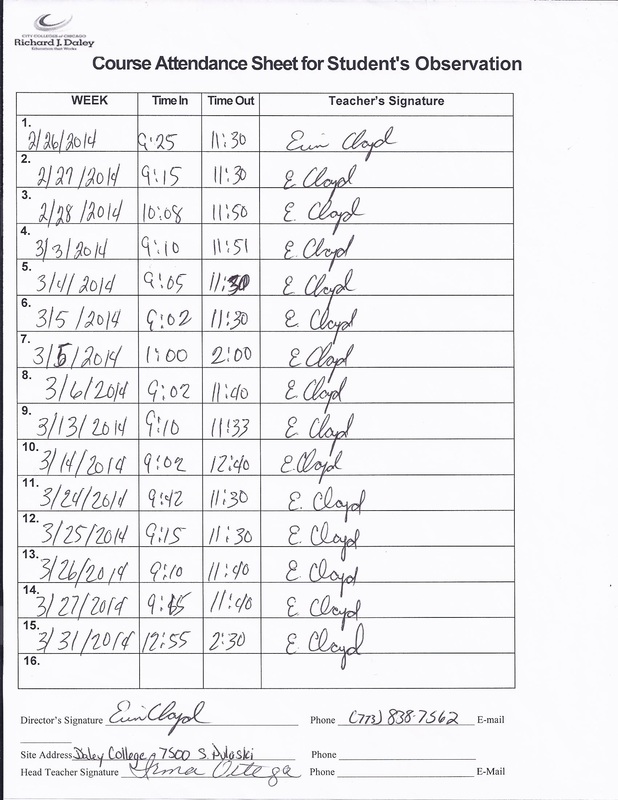 CITY COLLEGES of CHICAGO
Richard J. Daley
Education that Works
Course Attendance Sheet for Student's Observation
WEEK Time In Time Out Teacher's Signature
1. 2/26/2014 9:25 11:30 Erin Cloyd
2. 2/27/2014 9:15 11:30 E. Cloyd
3. 2/28/2014 10:08 11:50 E. Cloyd
4. 3/3/2014 9:10 11:51 E. Cloyd
5. 3/4/2014 9:05 11:30 E. Cloyd
6. 3/5/2014 9:02 11:30 E. Cloyd
7. 3/5/2014 1:00 2:00 E. Cloyd
8. 3/6/2014 9:02 11:40 E. Cloyd
9. 3/13/2014 9:10 11:33 E. Cloyd
10. 3/14/2014 9:02 12:40 E. Cloyd
11. 3/24/2014 9:42 11:30 E. Cloyd
12. 3/25/2014 9:15 11:30 E. Cloyd
13. 3/26/2014 9:10 11:40 E. Cloyd
14. 3/27/2014 9:15 11:40 E. Cloyd
15. 3/31/2014 12:55 2:30 E. Cloyd
16.
Director's Signature Erin Cloyd Phone (773) 838-7562 E-mail
Site Address Daley College - 7500 S. Pulaski Phone
Head Teacher Signature Irma Ortega Phone E-Mail